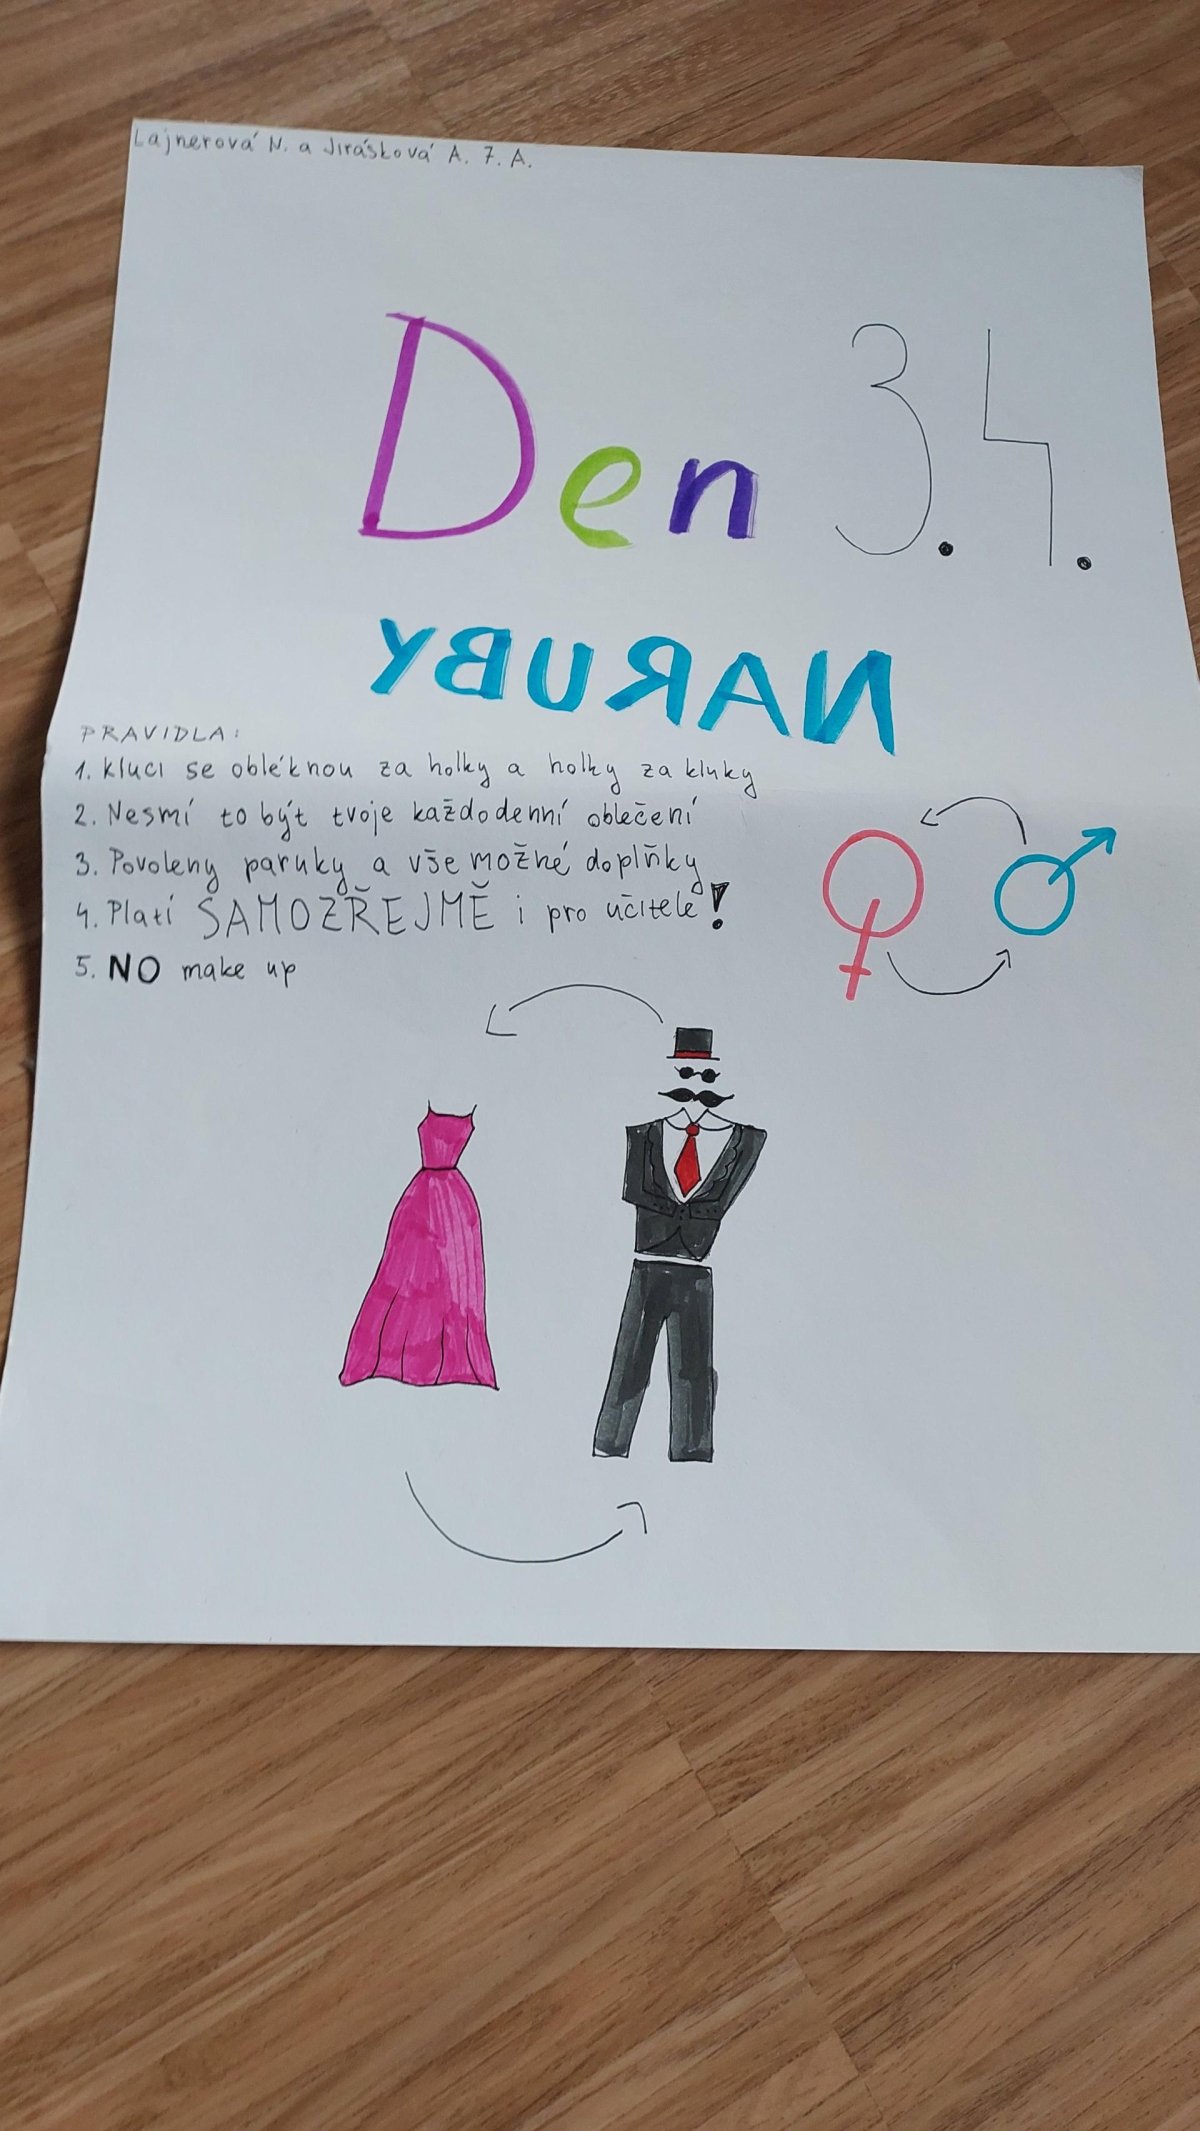 Lajnerová N. a Jirásková A. 7. A.
Den 3.4.
NARUBY
PRAVIDLA:
1. Kluci se obléknou za holky a holky za kluky
2. Nesmí to být tvoje každodenní oblečení
3. Povoleny paruky a vše možné doplňky
4. Platí SAMOZŘEJMĚ i pro účitele!
5. NO make up